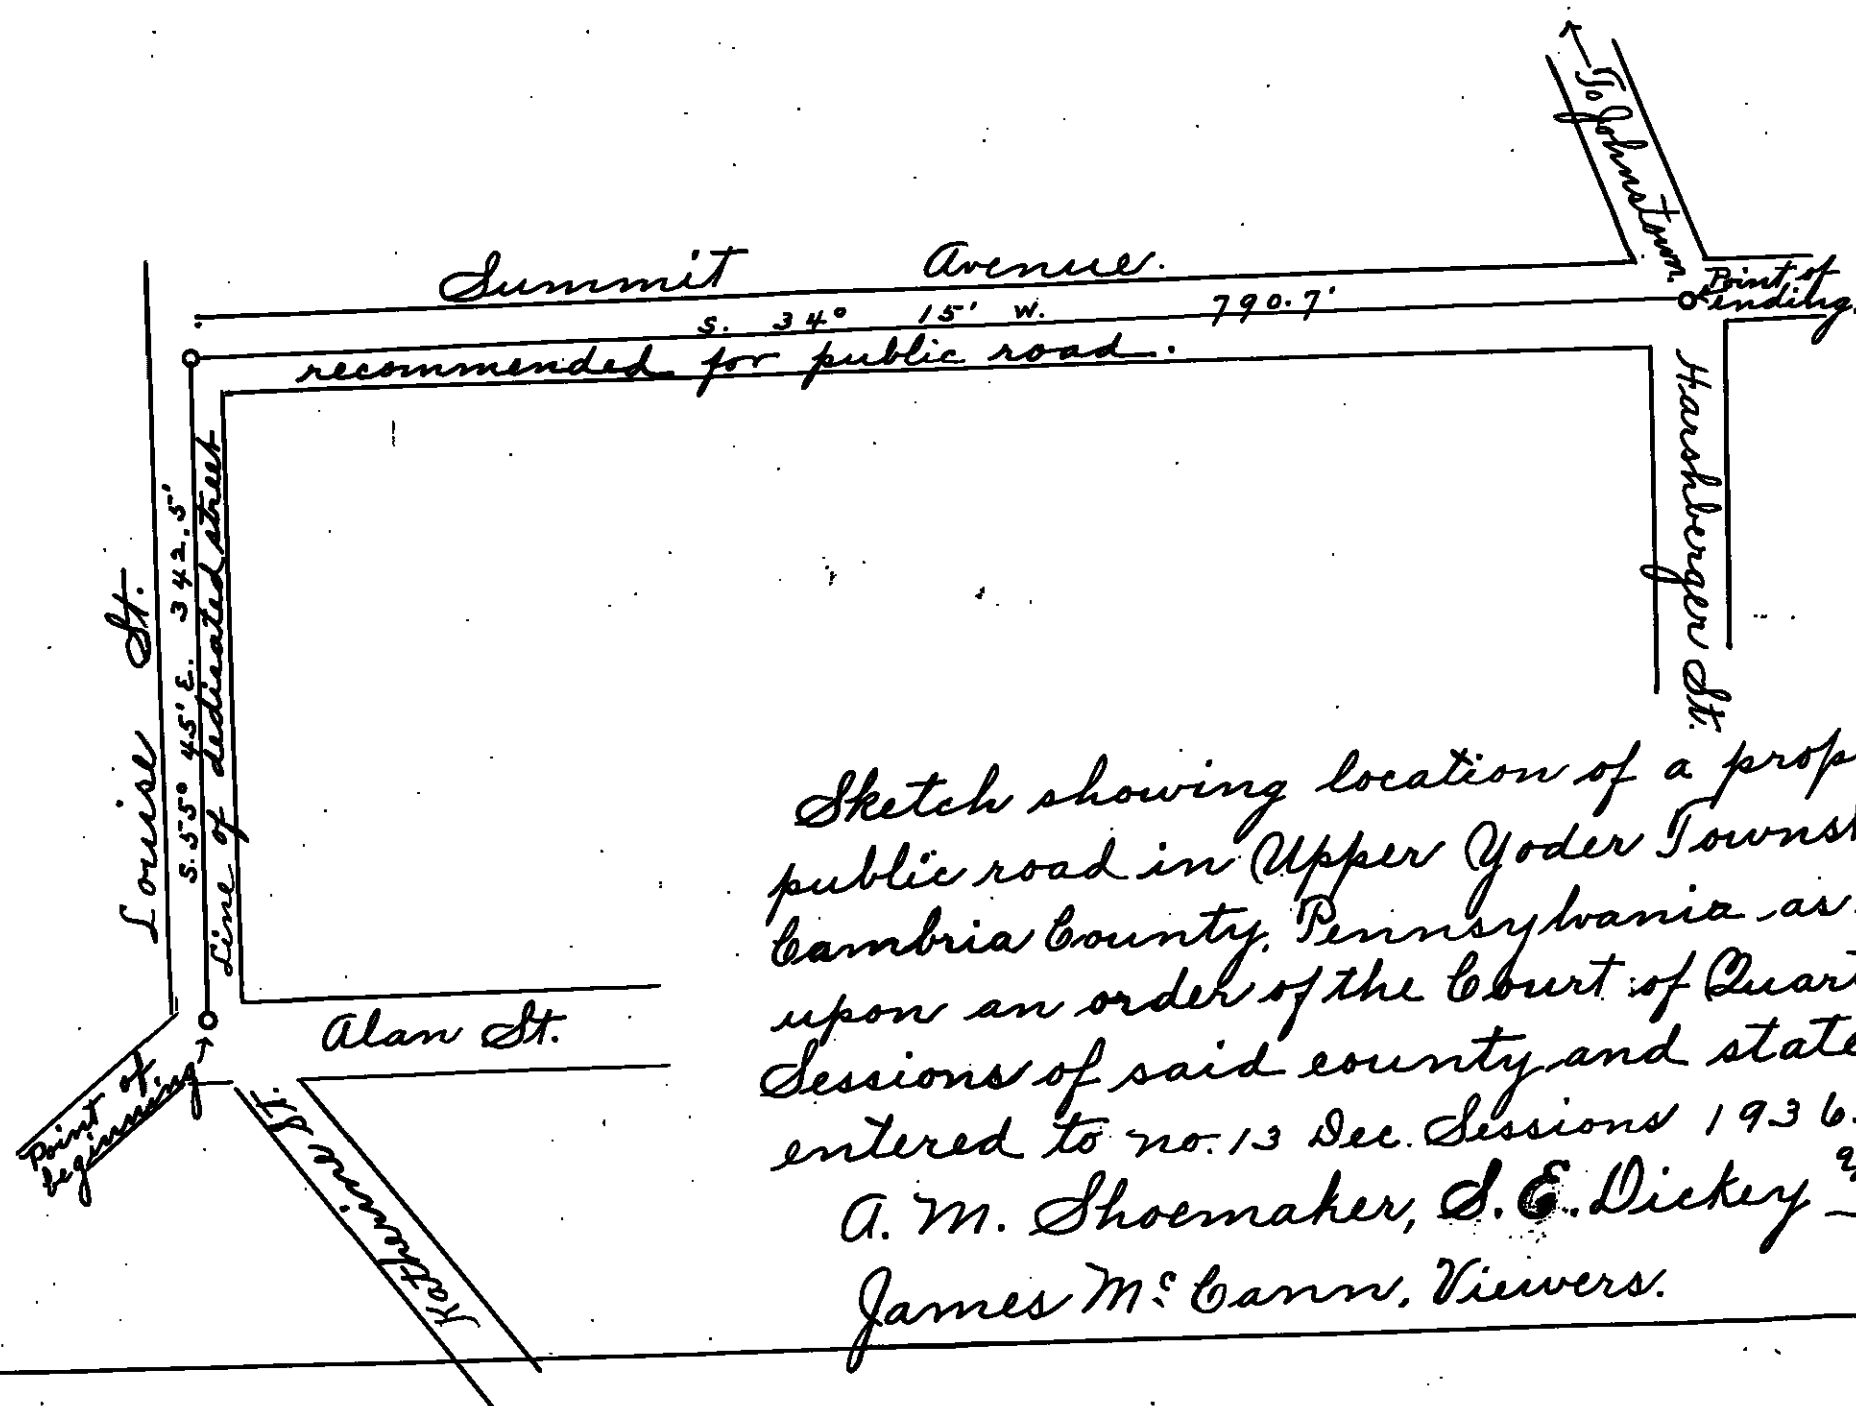 To Johnstown.
Summit Avenue.
Point of
ending.
S. 34° 15' W. 790.7'
recommended for public road.
Harshberger St.
Louise St.
S. 55° 45' E. 342.5'
Line of dedicated street
Alan St.
Point of
beginning
Katherine St.
Sketch showing location of a prop
public road in Upper Yoder Townsh
Cambria County, Pennsylvania as
upon an order of the Court of Quart
Sessions of said county and state
entered to no. 13 Dec. Sessions 1936.
A. M. Shoemaker, S. E. Dickey
James McCann, Viewers.